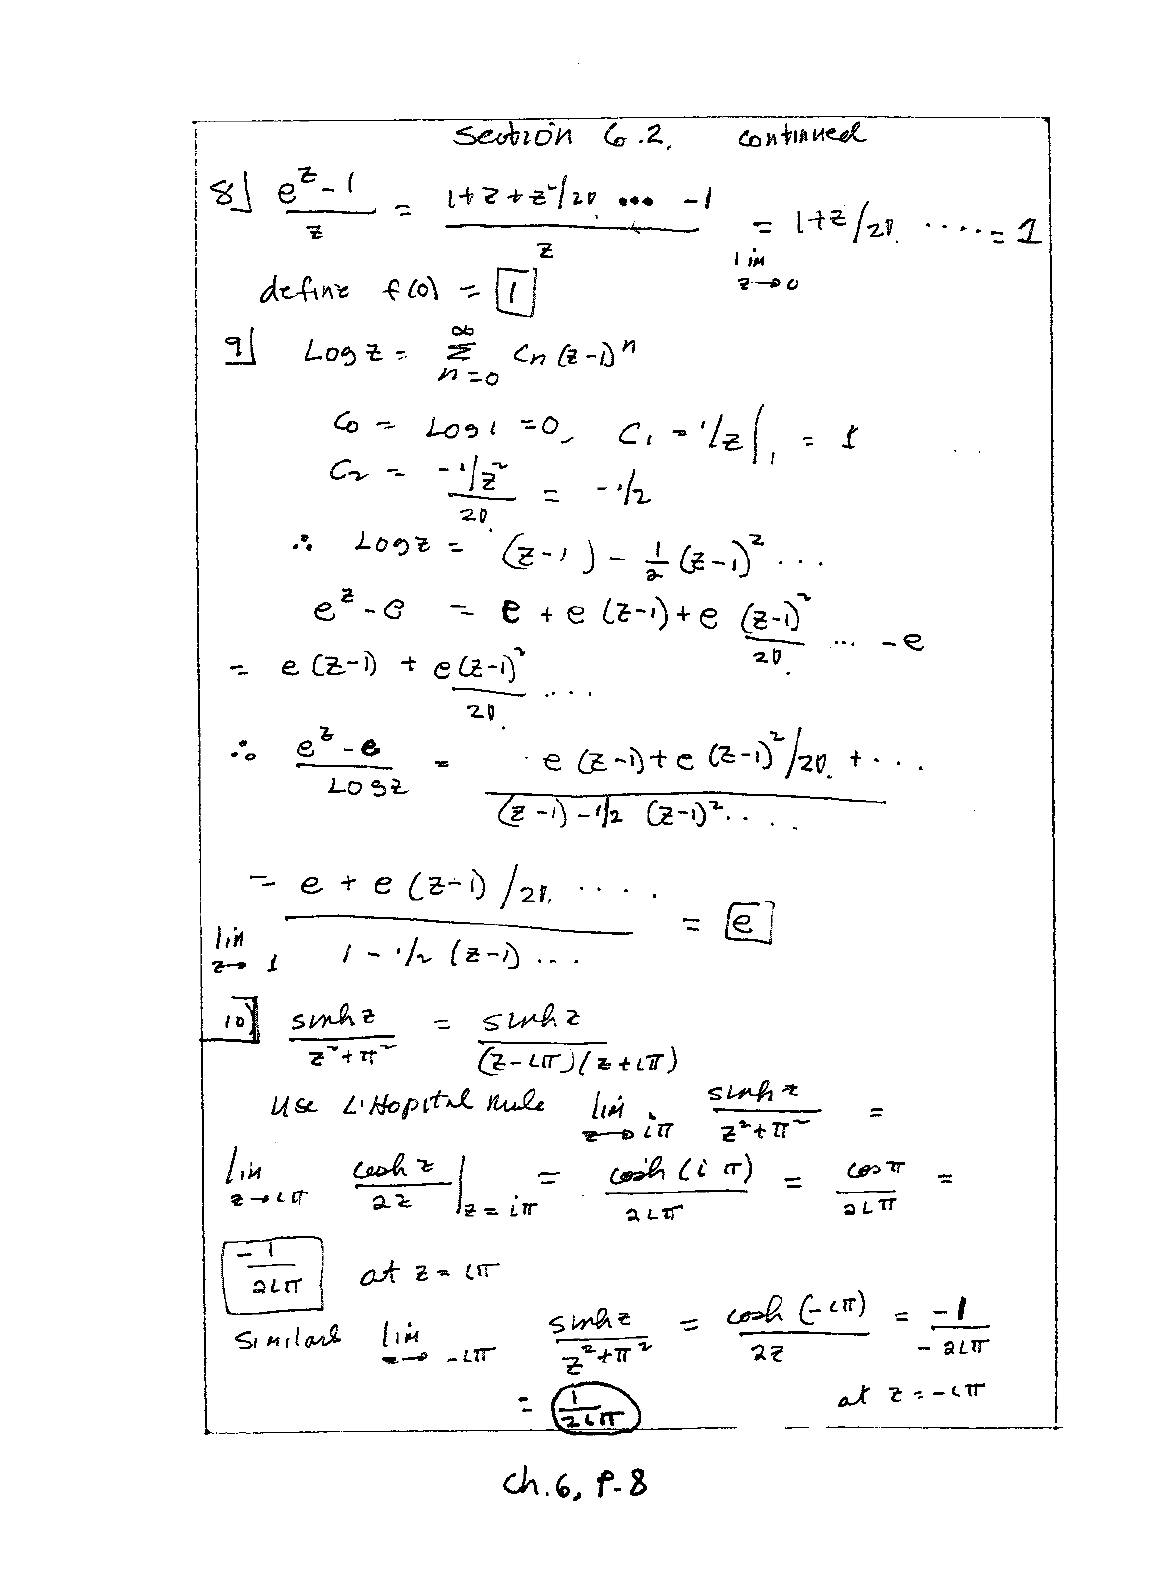 Section 6.2, continued
8] (e^z - 1)/z = (1+z+z²/2! ... -1)/z = lim z→0 1+z/2! ..... = 1
define f(0) = 1
9] Log z = Σ n=0 ∞ Cn (z-1)^n
C0 = Log 1 = 0, C1 = 1/z |1 = 1
C2 = (-1/z²)/2! = -1/2
∴ Log z = (z-1) - 1/2 (z-1)² ...
e^z - e = e + e (z-1) + e (z-1)²/2! ... - e
= e (z-1) + e (z-1)²/2! ....
∴ (e^z - e)/Log z = (e (z-1) + e (z-1)²/2! + ...)/((z-1) - 1/2 (z-1)² ....)
= lim z→1 (e + e (z-1)/2! ....)/(1 - 1/2 (z-1) ...) = e
10] sinh z/(z²+π²) = sinh z/((z-iπ)(z+iπ))
Use L'Hopital Rule lim z→iπ sinh z/(z²+π²) =
lim z→iπ cosh z/2z |z=iπ = cosh(iπ)/2iπ = cos π/2iπ =
-1/2iπ at z=iπ
Similarl lim z→-iπ sinh z/(z²+π²) = cosh (-iπ)/2z = -1/-2iπ
= 1/2iπ at z=-iπ
Ch.6, P-8